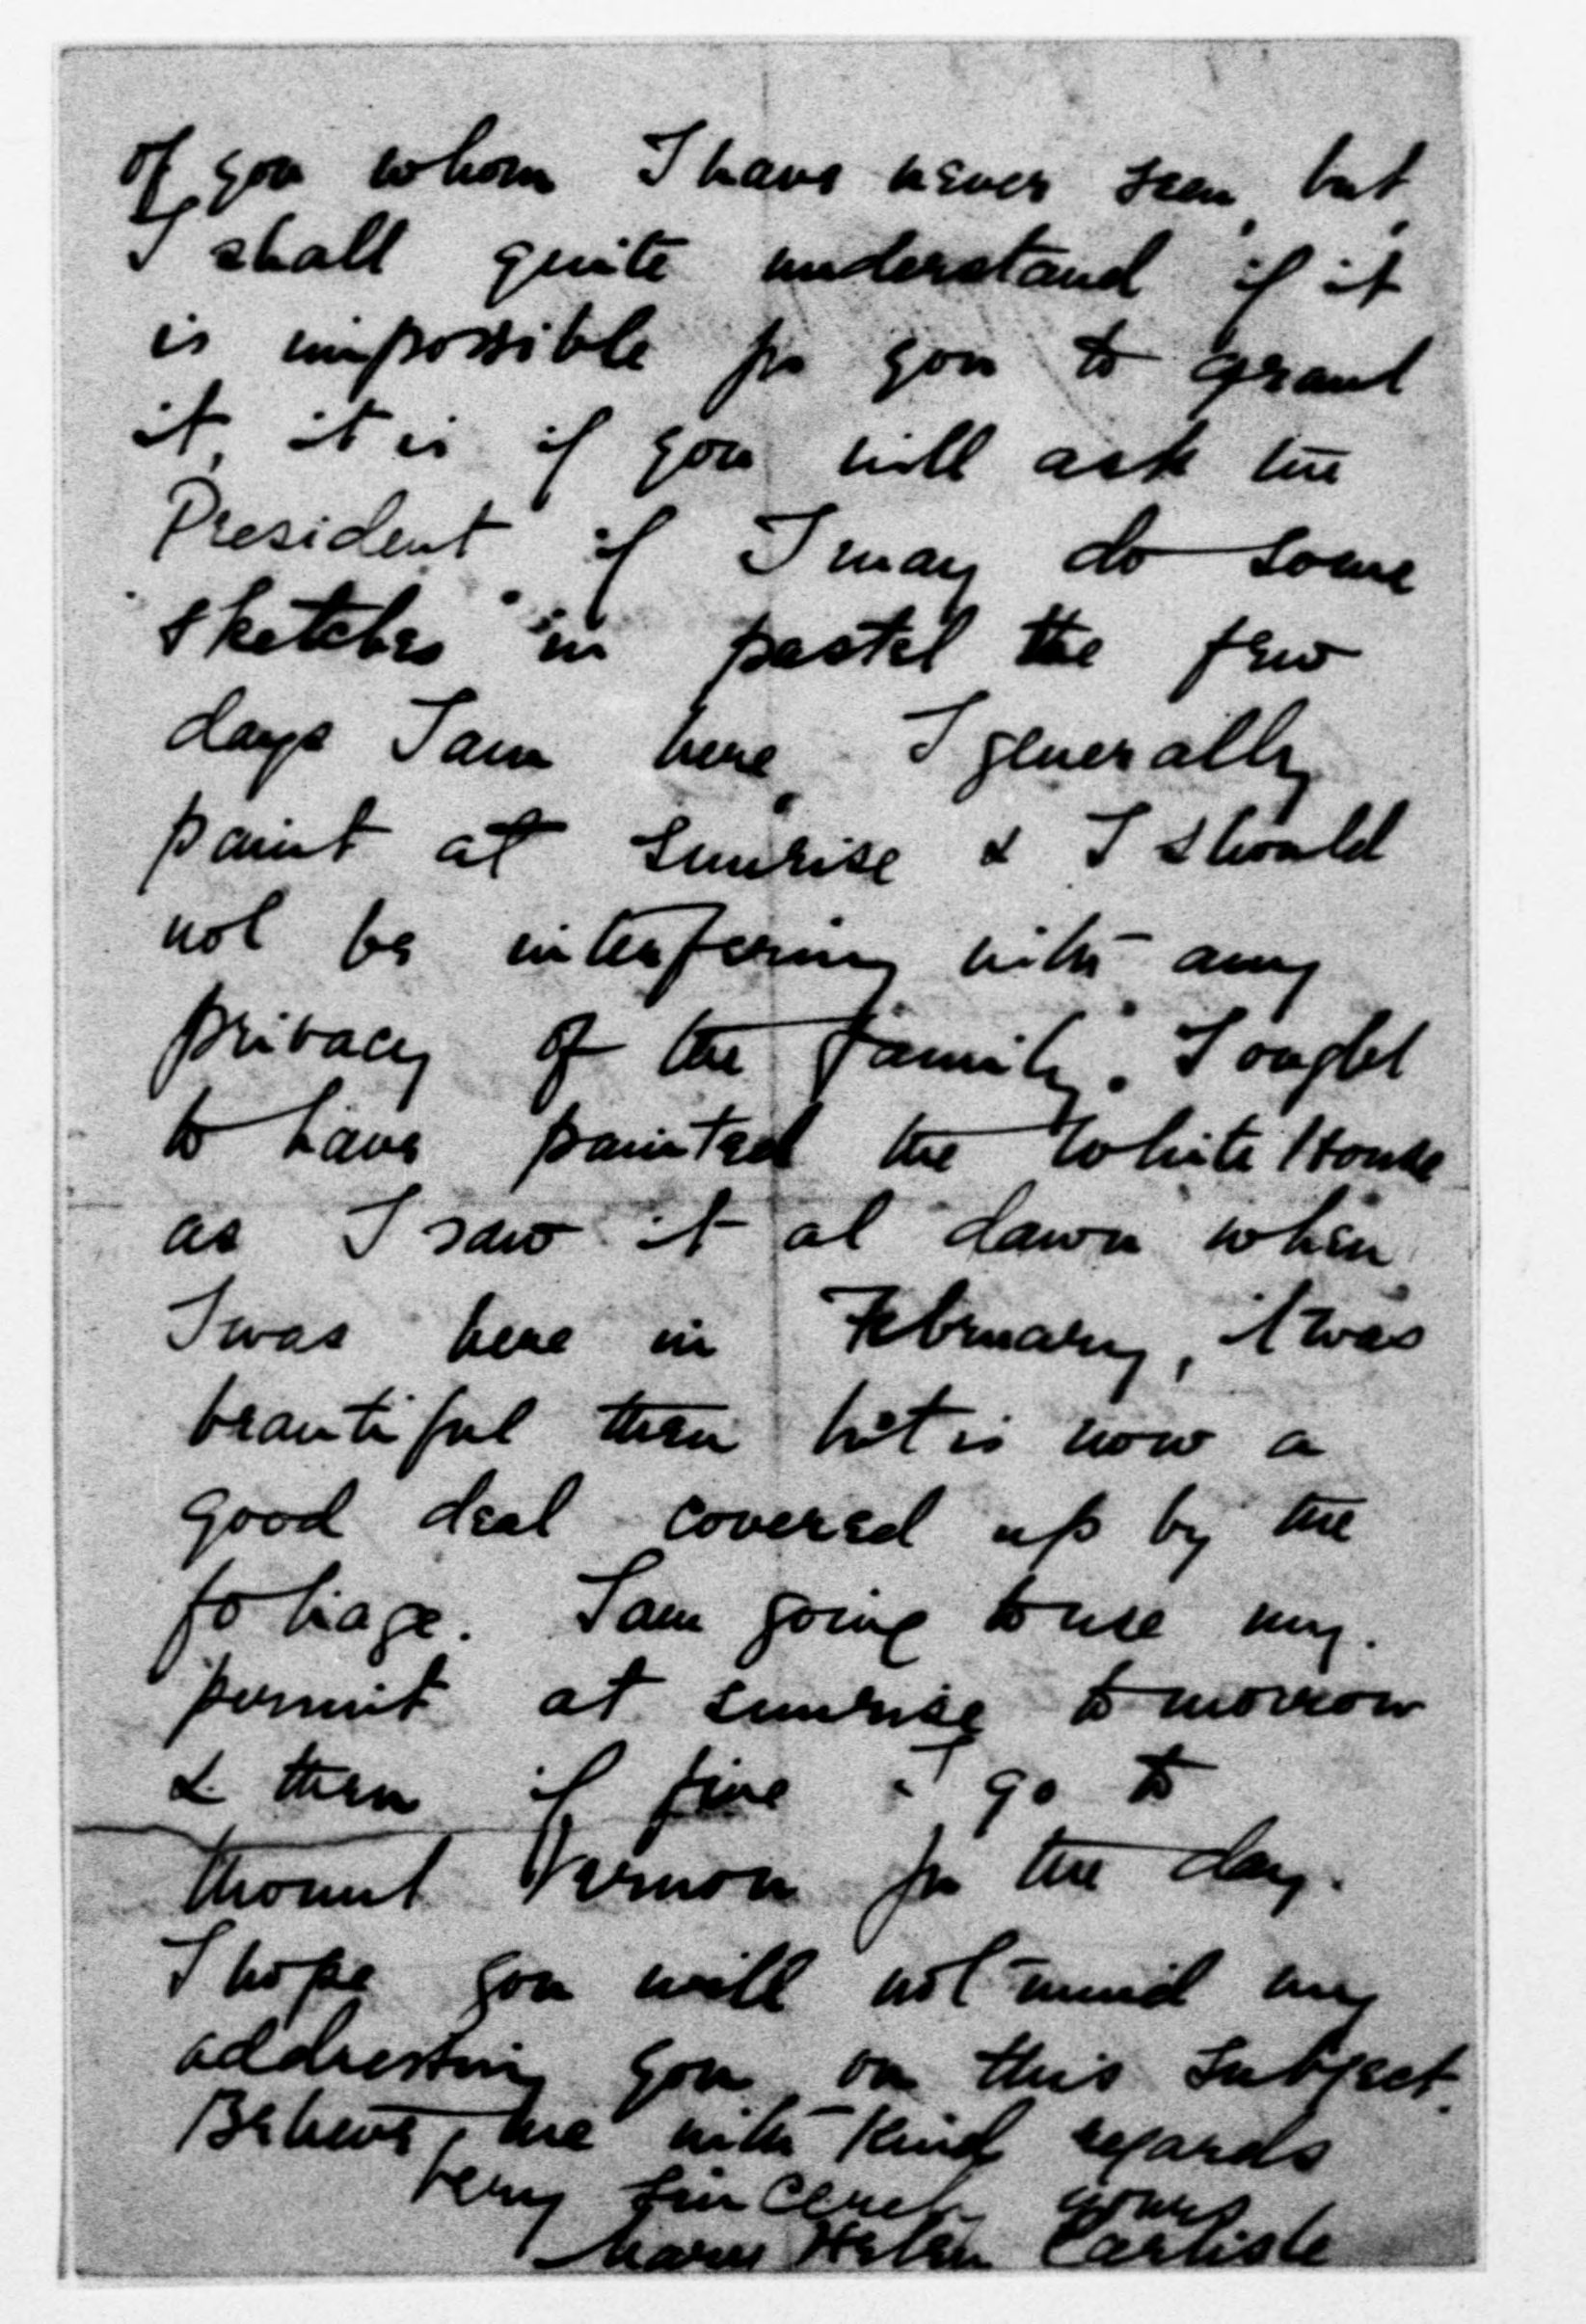 of you whom I have never seen, but
I shall quite understand if it
is impossible for you to grant
it, it is if you will ask the
President if I may do some
sketches in pastel the few
days I am here, I generally
paint at sunrise & I should
not be interfering with any
privacy of the family. I ought
to have painted the White House
as I saw it at dawn when
I was here in February, it was
beautiful then but is now a
good deal covered up by the
foliage. I am going to use my
permit at sunrise tomorrow
& then if fine I go to
Mount Vernon for the day.
I hope you will not mind my
addressing you on this subject.
Believe me with kind regards
very sincerely yours
Mary Helen Carlisle